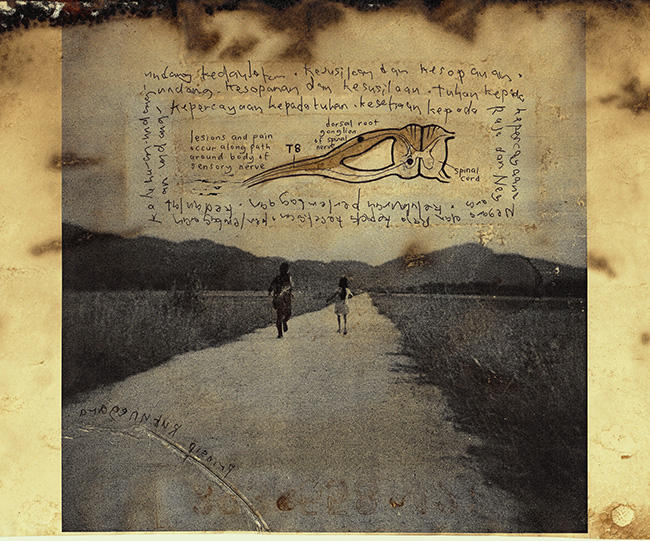 undang kedaulatan . Kesusilaan dan kesopanan .
undang . Kesopanan dan kesusilaan . tuhan kepada
kepercayaan kepada tuhan . kesetiaan kepada
kepercayaan
Raja dan Neg
dorsal root
ganglion
of spinal
nerve
lesions and pain
occur along path
around body of
sensory nerve
T8
spinal
cord
ara . keluhuran perlembagaan . kedaulat
Negara dan Raja kepada kesetiaan . perlembagaan